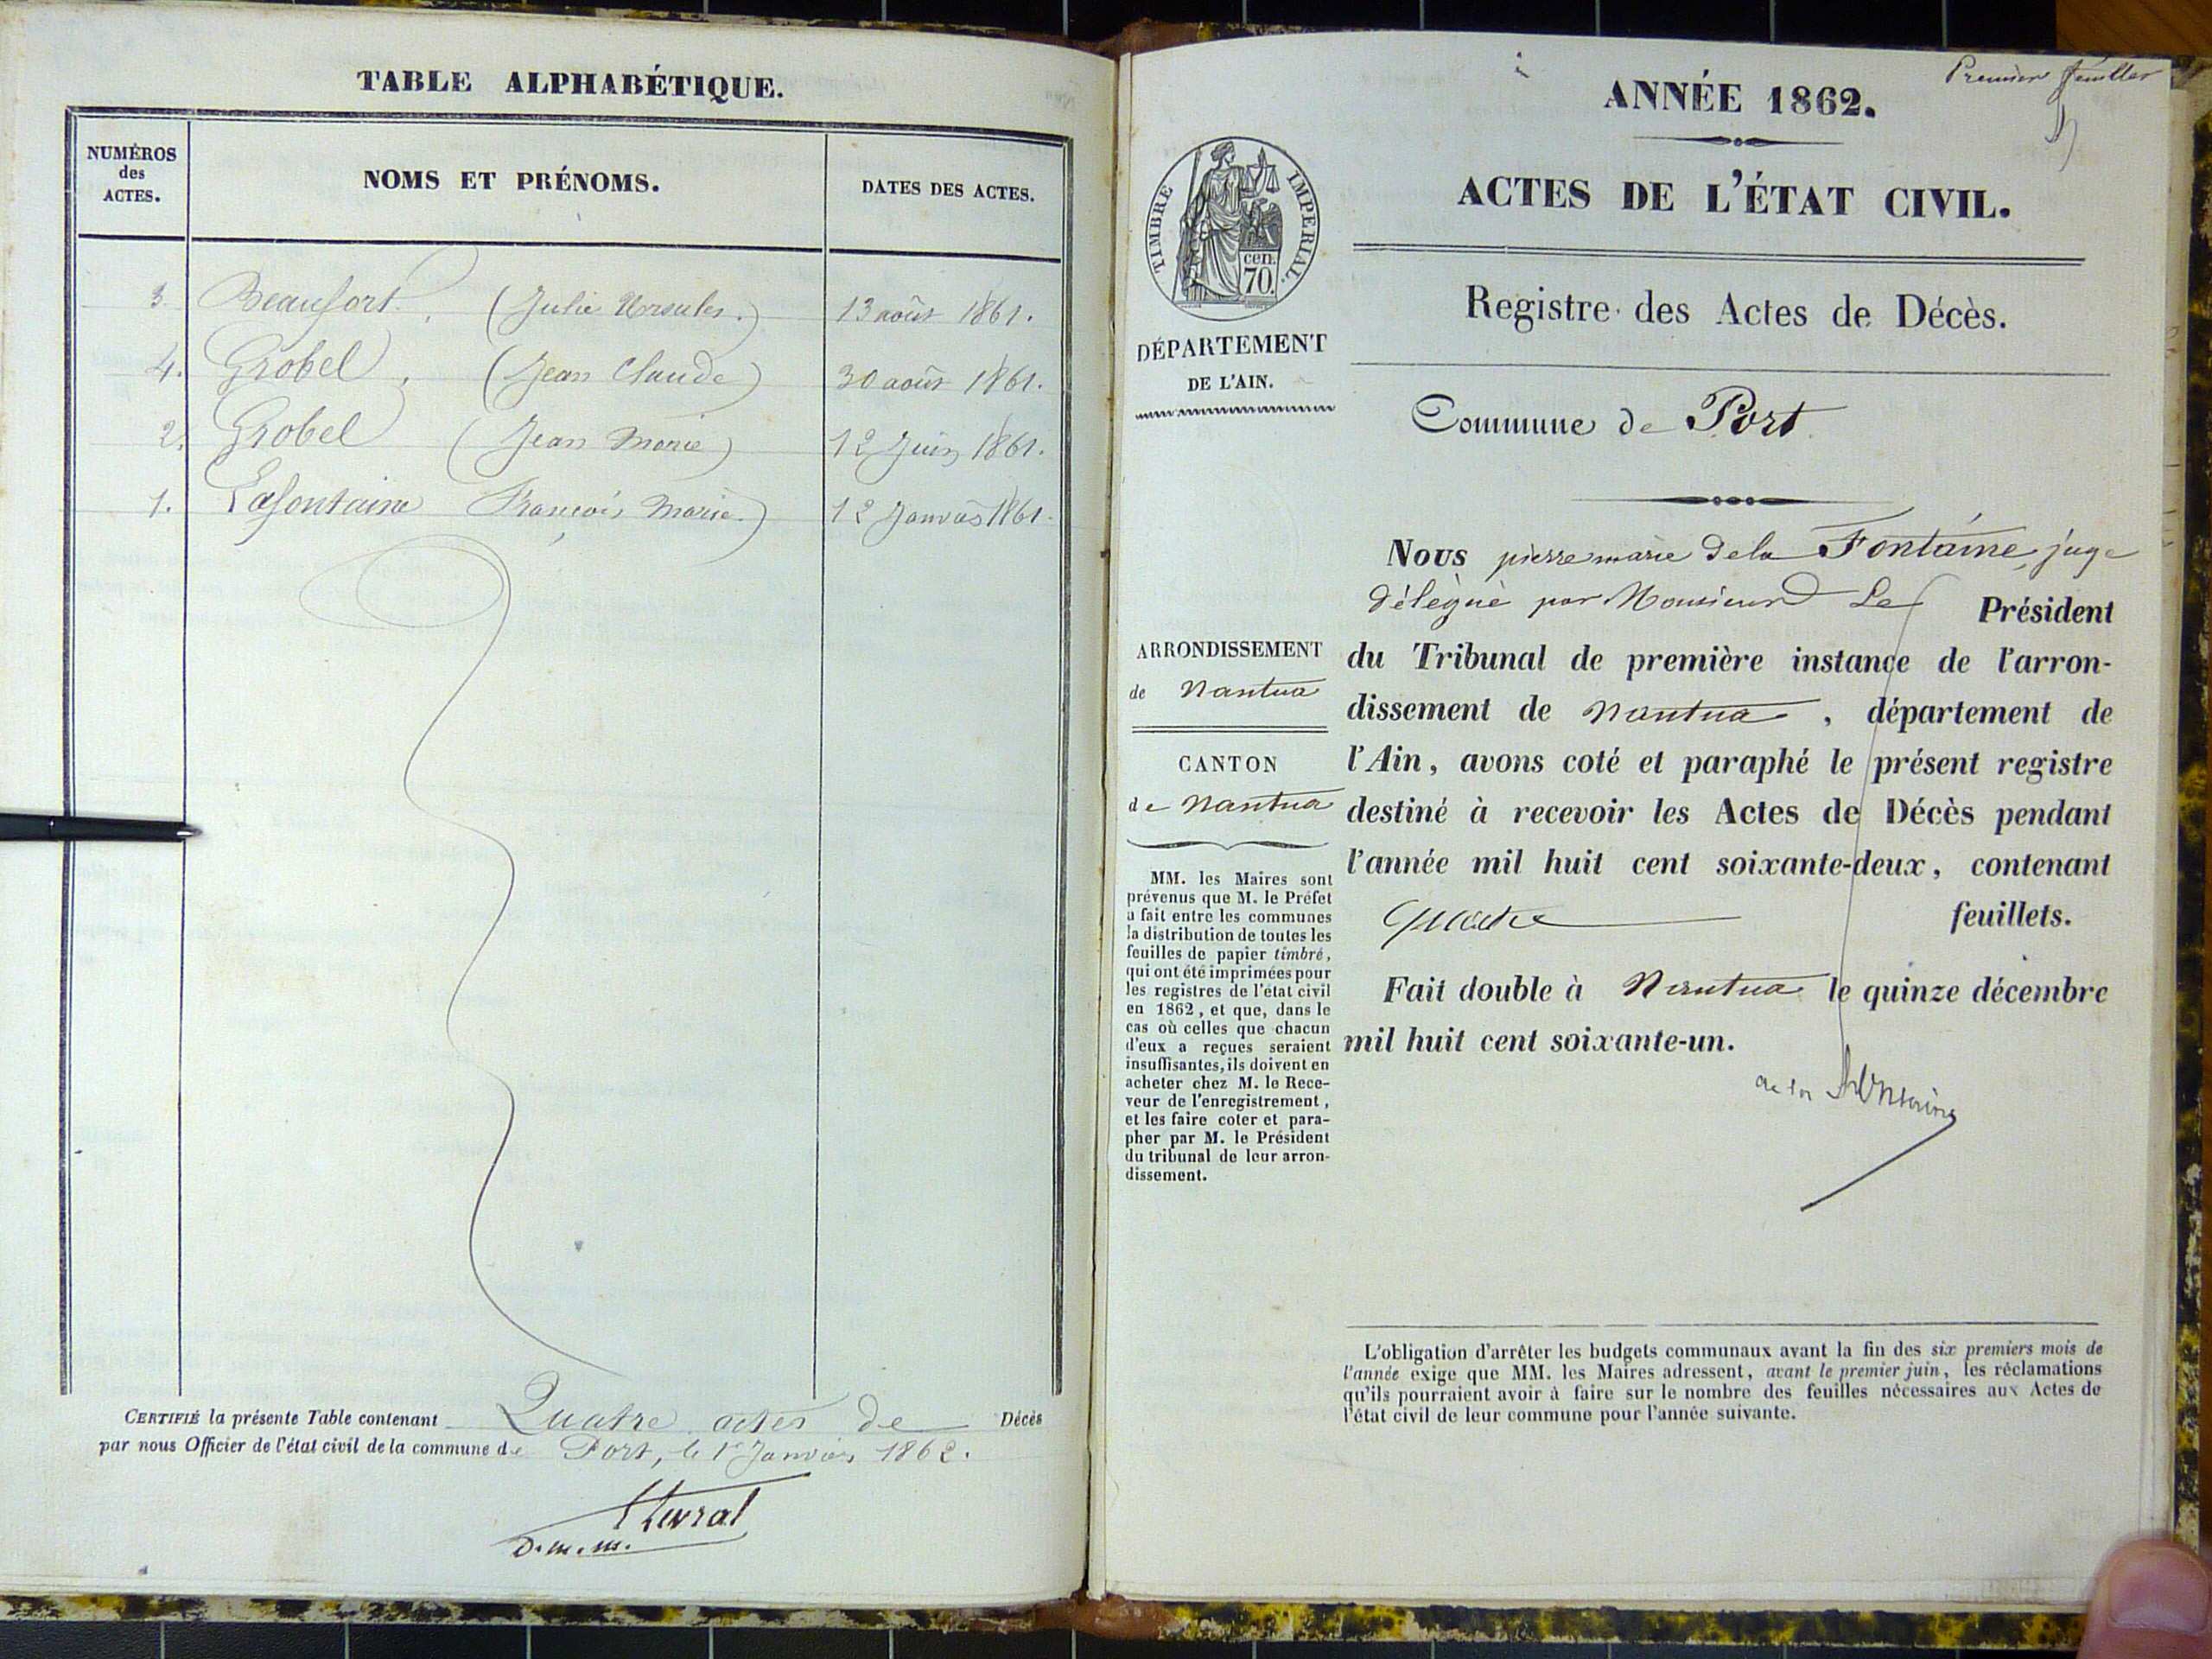 TABLE ALPHABÉTIQUE.
NUMÉROS
des
ACTES.
NOMS ET PRÉNOMS.
DATES DES ACTES.
3. Beaufort. (Julie Ursules.) 13 août 1861.
4. Grobel, (Jean Claude) 30 août 1861.
2. Grobel (Jean Marie) 12 Juin 1861.
1. Lafontaine François Marie.) 12 Janvier 1861.
CERTIFIÉ la présente Table contenant Quatre actes de Décès
par nous Officier de l'état civil de la commune de Port, le 1er Janvier 1862.
D.m.m.
Premier feuillet
ANNÉE 1862.
ACTES DE L'ÉTAT CIVIL.
TIMBRE IMPERIAL.
cen.
70.
Registre des Actes de Décès.
DÉPARTEMENT
DE L'AIN.
Commune de Port
ARRONDISSEMENT
de Nantua
CANTON
de Nantua
MM. les Maires sont
prévenus que M. le Préfet
a fait entre les communes
la distribution de toutes les
feuilles de papier timbré,
qui ont été imprimées pour
les registres de l'état civil
en 1862, et que, dans le
cas où celles que chacun
d'eux a reçues seraient
insuffisantes, ils doivent en
acheter chez M. le Rece-
veur de l'enregistrement,
et les faire coter et para-
pher par M. le Président
du tribunal de leur arron-
dissement.
Nous pierre marie de la Fontaine, juge
délégué par Monsieur Le Président
du Tribunal de première instance de l'arron-
dissement de Nantua, département de
l'Ain, avons coté et paraphé le présent registre
destiné à recevoir les Actes de Décès pendant
l'année mil huit cent soixante-deux, contenant
quatre feuillets.
Fait double à Nantua le quinze décembre
mil huit cent soixante-un.
de la Fontaine
L'obligation d'arrêter les budgets communaux avant la fin des six premiers mois de
l'année exige que MM. les Maires adressent, avant le premier juin, les réclamations
qu'ils pourraient avoir à faire sur le nombre des feuilles nécessaires aux Actes de
l'état civil de leur commune pour l'année suivante.